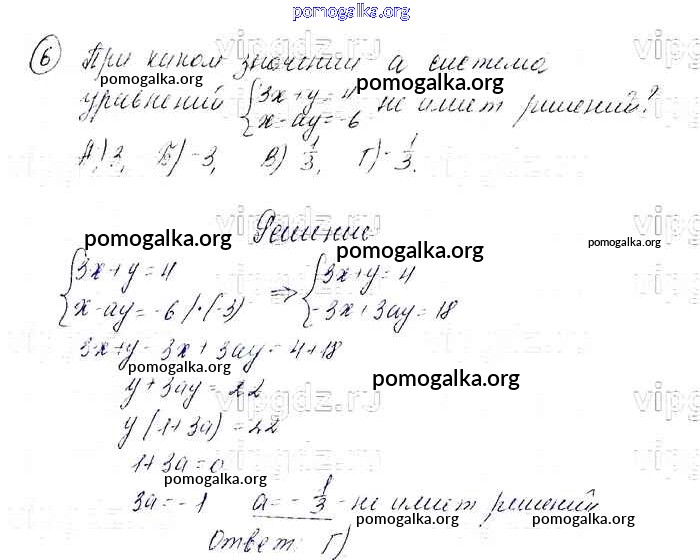 pomogalka.org
6 При каком значении а система
pomogalka.org pomogalka.org
уравнений { 3x+y=4 x-ay=-6 не имеет решений?
А) 3, Б) -3, В) 1/3, Г) -1/3.
vipgdz.ru
Решение
pomogalka.org pomogalka.org pomogalka.org
{ 3x+y=4 x-ay=-6 /·(-3) => { 3x+y=4 -3x+3ay=18
3x+y-3x+3ay=4+18
pomogalka.org
y+3ay=22
pomogalka.org
vipgdz.ru
y(1+3a)=22
1+3a=0
pomogalka.org pomogalka.org
3a=-1 a=-1/3 - не имеет решений
pomogalka.org pomogalka.org
Ответ: Г)